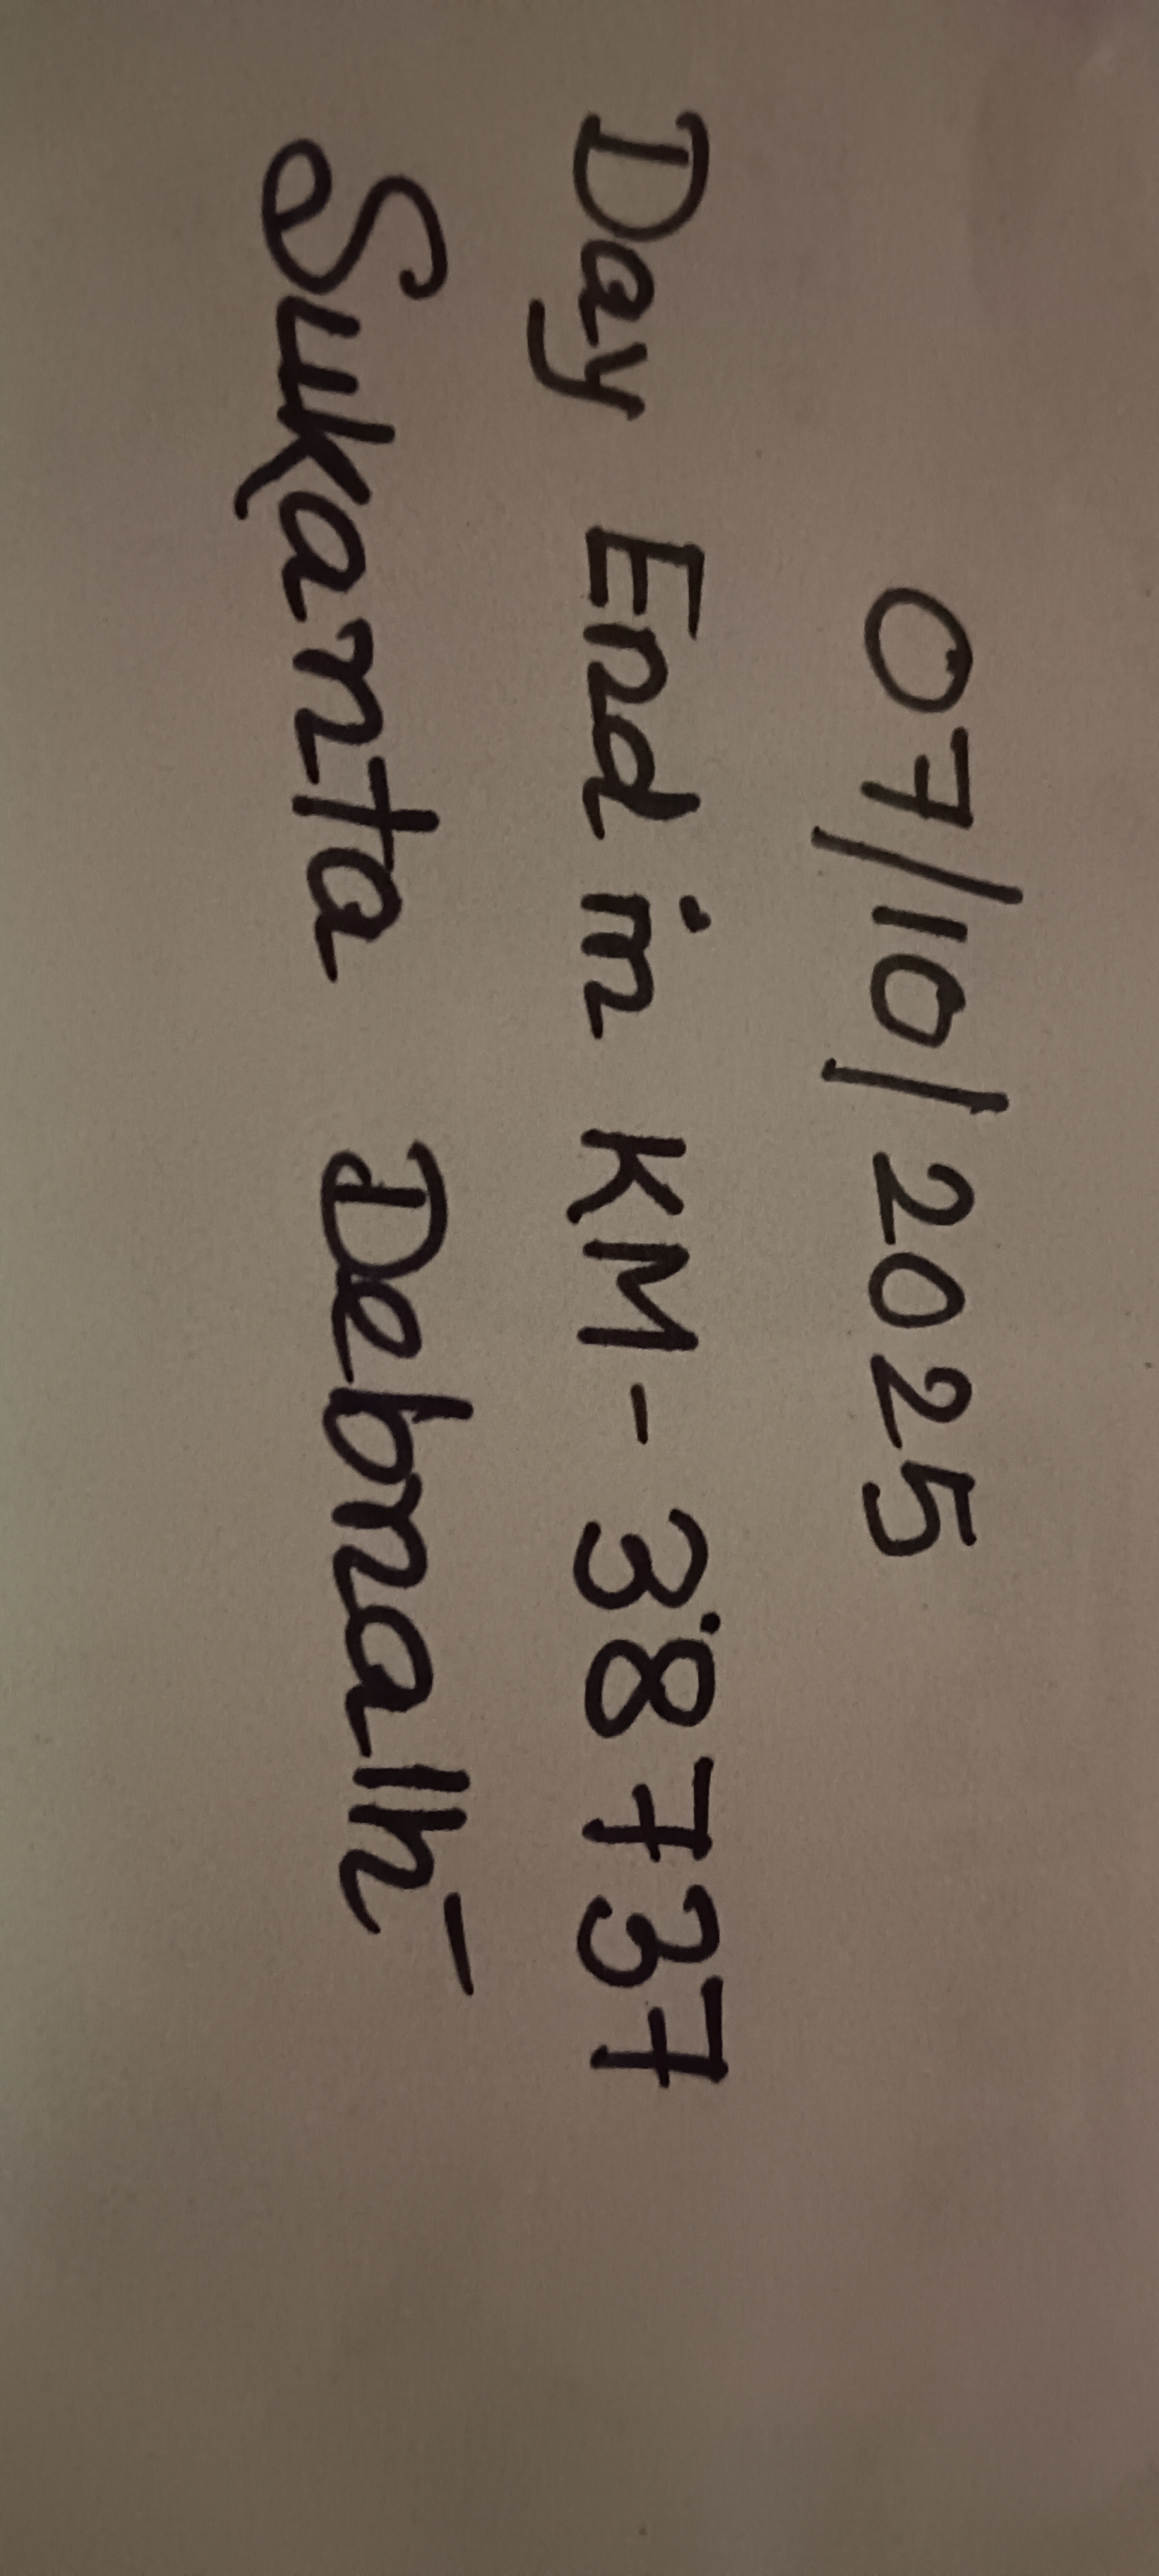 07/10/2025
Day End in KM - 38737
Sukanta Debnath